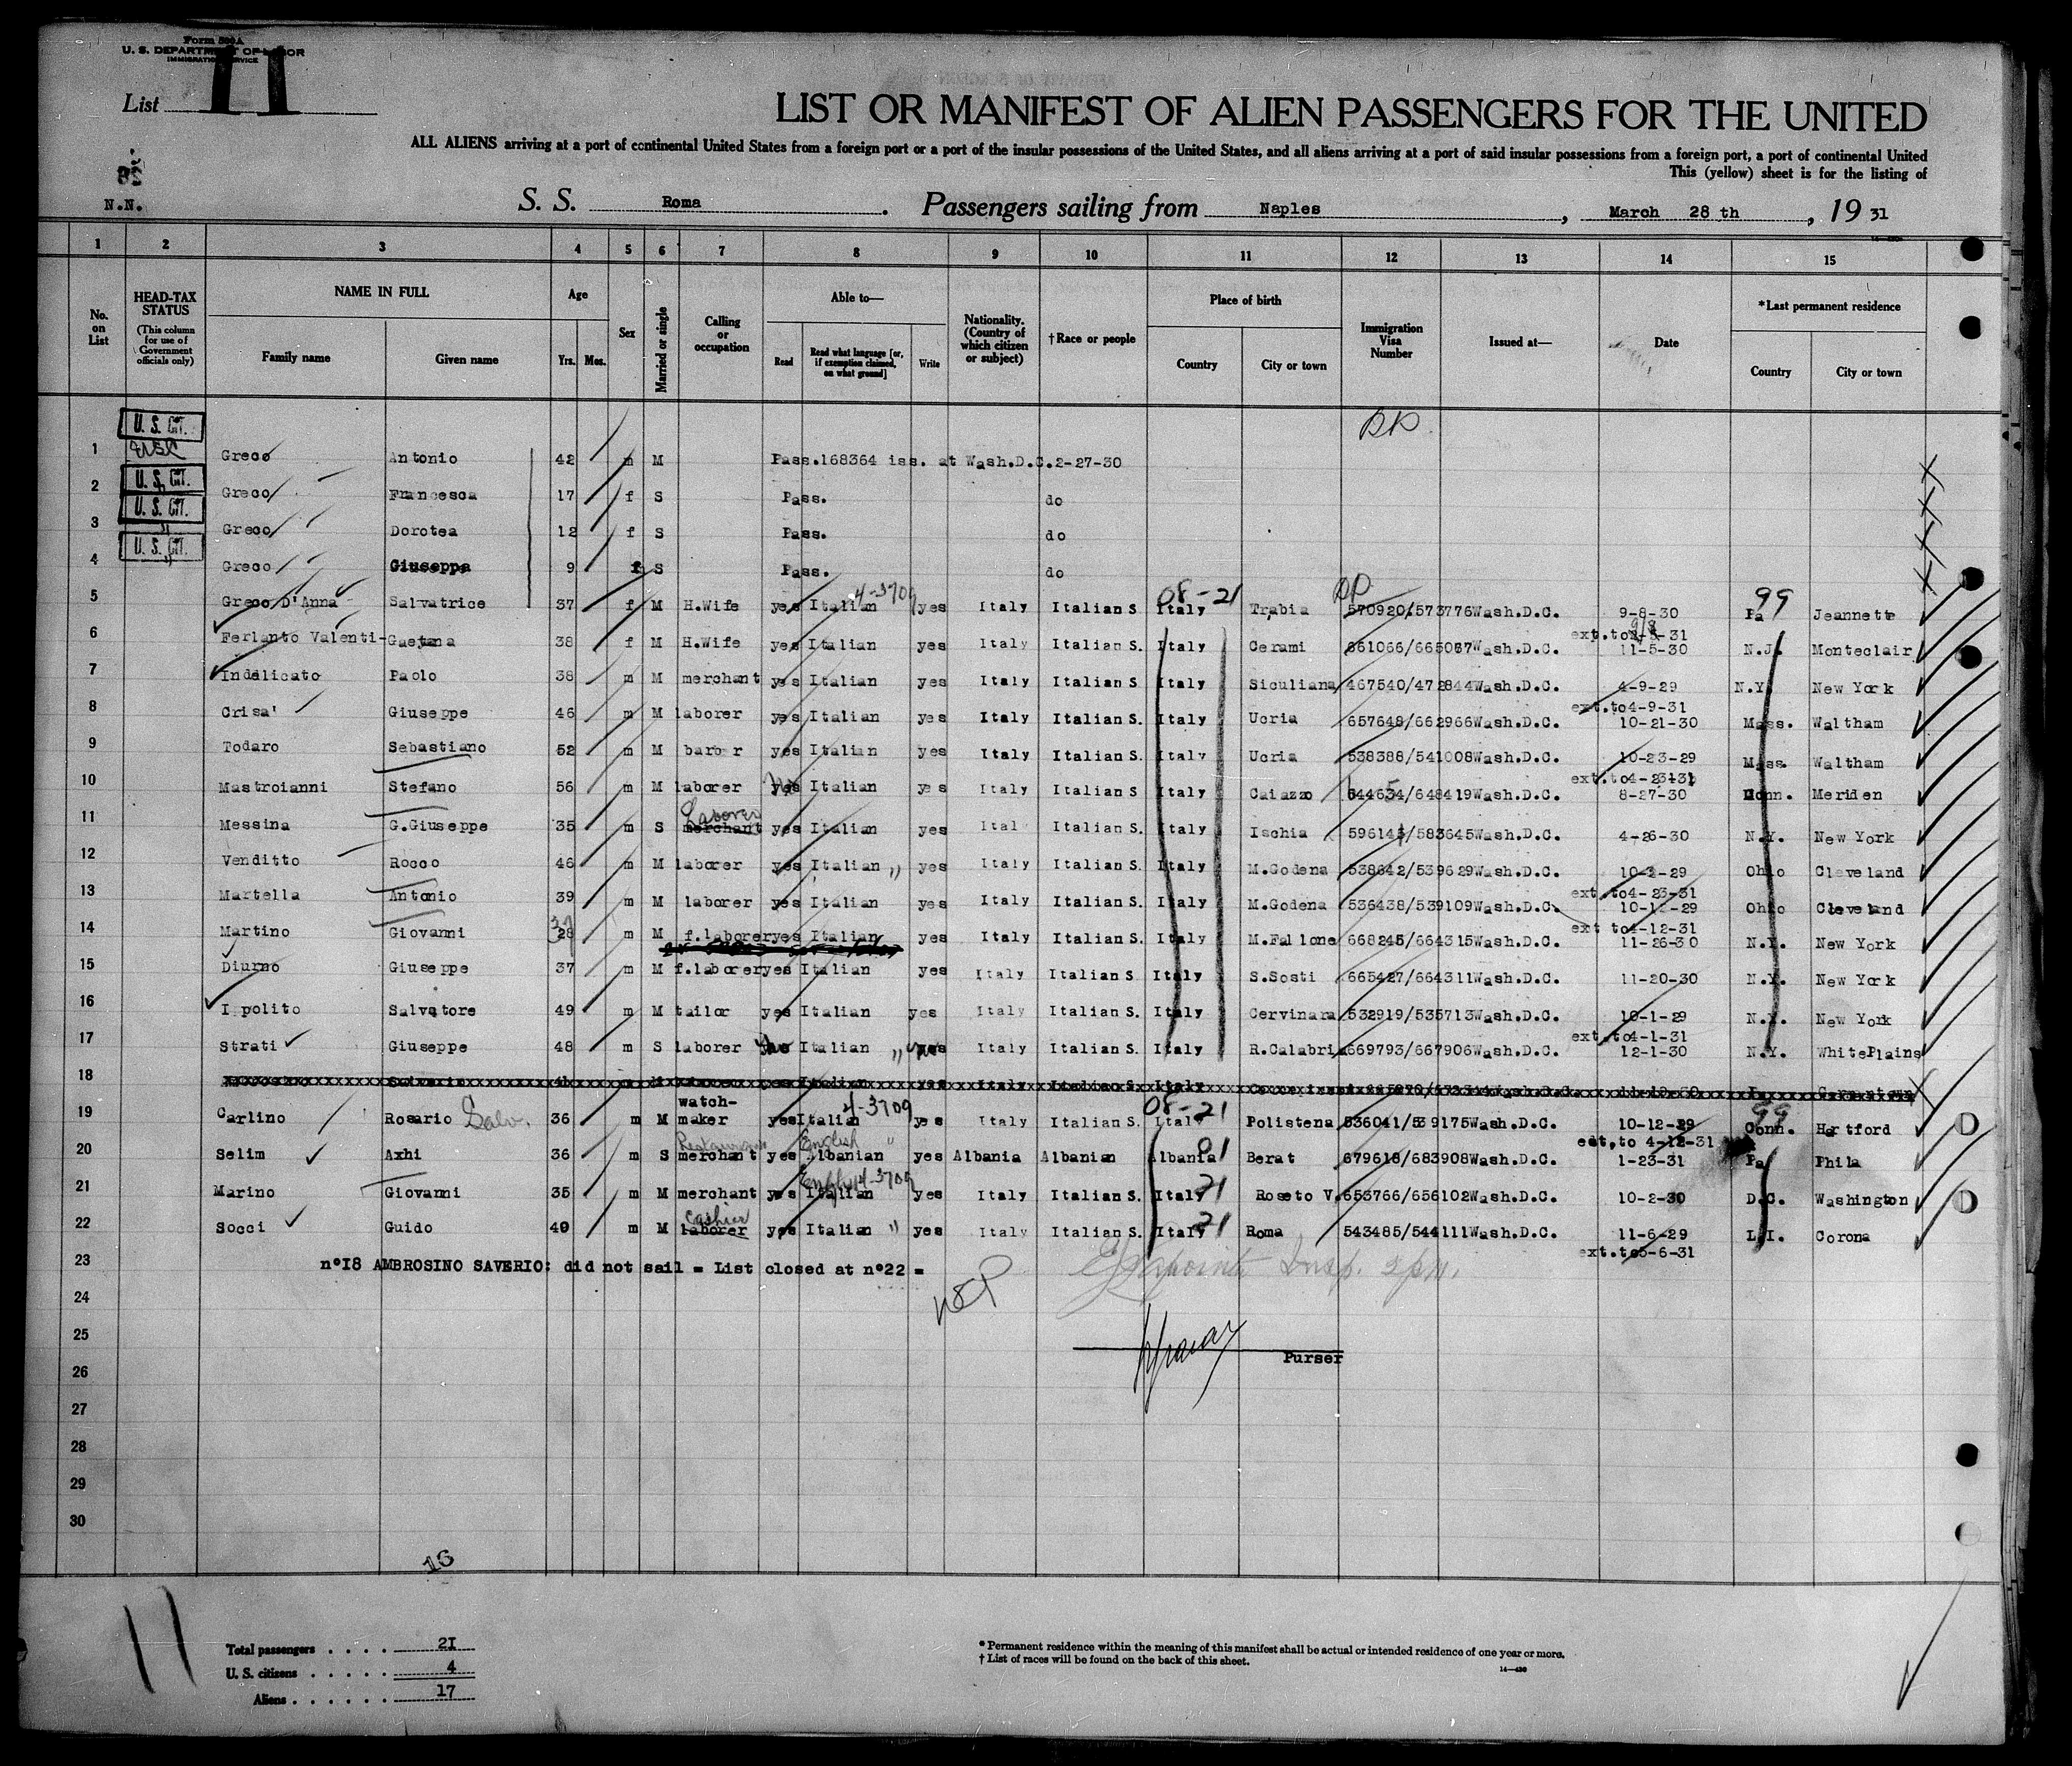 Form 500A
U. S. DEPARTMENT OF LABOR
IMMIGRATION SERVICE
List 11
LIST OR MANIFEST OF ALIEN PASSENGERS FOR THE UNITED
ALL ALIENS arriving at a port of continental United States from a foreign port or a port of the insular possessions of the United States, and all aliens arriving at a port of said insular possessions from a foreign port, a port of continental United
This (yellow) sheet is for the listing of
N.N.
S. S. Roma. Passengers sailing from Naples, March 28 th, 19 31
1 2 3 4 5 6 7 8 9 10 11 12 13 14 15
No. on List
HEAD-TAX STATUS (This column for use of Government officials only)
NAME IN FULL
Family name Given name
Age Yrs. Mos.
Sex
Married or single
Calling or occupation
Able to—
Read Read what language [or, if exemption claimed, on what ground] Write
Nationality. (Country of which citizen or subject)
†Race or people
Place of birth
Country City or town
Immigration Visa Number
Issued at—
Date
*Last permanent residence
Country City or town
1 U. S. CIT. USC Greco Antonio 42 m M Pass.168364 iss. at Wash.D.C.2-27-30
2 U. S. CIT. Greco Francesca 17 f S Pass. do
3 U. S. CIT. Greco Dorotea 12 f S Pass. do
4 U. S. CIT. Greco Giuseppa 9 f S Pass. do
4-3709 08-21 99
5 Greco D'Anna Salvatrice 37 f M H.Wife yes Italian yes Italy Italian S. Italy Trabia 570920/573776 Wash.D.C. 9-8-30 Pa Jeannette
ext.to 9-8-31
6 Ferlanto Valenti- Gaetana 38 f M H.Wife yes Italian yes Italy Italian S. Italy Cerami 661066/665067 Wash.D.C. 11-5-30 N.J. Monteclair
7 Indelicato Paolo 38 m M merchant yes Italian yes Italy Italian S. Italy Siculiana 467540/472844 Wash.D.C. 4-9-29 N.Y. New York
ext.to4-9-31
8 Crisa' Giuseppe 46 m M laborer yes Italian yes Italy Italian S. Italy Ucria 657648/662966 Wash.D.C. 10-21-30 Mass. Waltham
9 Todaro Sebastiano 52 m M barber yes Italian yes Italy Italian S. Italy Ucria 538388/541008 Wash.D.C. 10-23-29 Mass. Waltham
ext.to4-23-31
10 Mastroianni Stefano 56 m M laborer yes Italian yes Italy Italian S. Italy Caiazzo 644654/648419 Wash.D.C. 8-27-30 Conn. Meriden
Laborer
11 Messina G.Giuseppe 35 m S merchant yes Italian yes Italy Italian S. Italy Ischia 596145/583645 Wash.D.C. 4-26-30 N.Y. New York
12 Venditto Rocco 46 m M laborer yes Italian yes Italy Italian S. Italy M.Godena 538642/539629 Wash.D.C. Ohio Cleveland
ext.to4-23-31
13 Martella Antonio 39 m M laborer yes Italian yes Italy Italian S. Italy M.Godena 536438/539109 Wash.D.C. 10-12-29 Ohio Cleveland
ext to4-12-31
14 Martino Giovanni 28 m M f.laborer yes Italian yes Italy Italian S. Italy M.Fallone 668245/664315 Wash.D.C. 11-26-30 N.Y. New York
15 Diurno Giuseppe 37 m M f.laborer yes Italian yes Italy Italian S. Italy S.Sosti 665427/664311 Wash.D.C. 11-20-30 N.Y. New York
16 Ippolito Salvatore 49 m M tailor yes Italian yes Italy Italian S. Italy Cervinara 532919/535713 Wash.D.C. 10-1-29 N.Y. New York
ext.to4-1-31
17 Strati Giuseppe 48 m S laborer yes Italian yes Italy Italian S. Italy R.Calabria 669793/667906 Wash.D.C. 12-1-30 N.Y. WhitePlains
18
4-3709 08-21 99
19 Carlino Rosario Salv. 36 m M watch-maker yes Italian yes Italy Italian S. Italy Polistena 536041/539175 Wash.D.C. 10-12-29 Conn. Hartford
ext,to 4-12-31
English 01
20 Selim Axhi 36 m S merchant yes Albanian yes Albania Albanian Albania Berat 679618/683908 Wash.D.C. 1-23-31 Pa Phila
4-3709 21
21 Marino Giovanni 35 m M merchant yes Italian yes Italy Italian S. Italy Roseto V. 653766/656102 Wash.D.C. 10-2-30 D.C. Washington
Cashier 21
22 Socci Guido 40 m M laborer yes Italian yes Italy Italian S. Italy Roma 543485/544111 Wash.D.C. 11-6-29 L.I. Corona
ext.to5-6-31
23 n°18 AMBROSINO SAVERIO: did not sail = List closed at n°22 =
24
25
Purser
26
27
28
29
30
16
11
Total passengers . . . . 21
U. S. citizens . . . . . 4
Aliens . . . . . . 17
* Permanent residence within the meaning of this manifest shall be actual or intended residence of one year or more.
† List of races will be found on the back of this sheet.